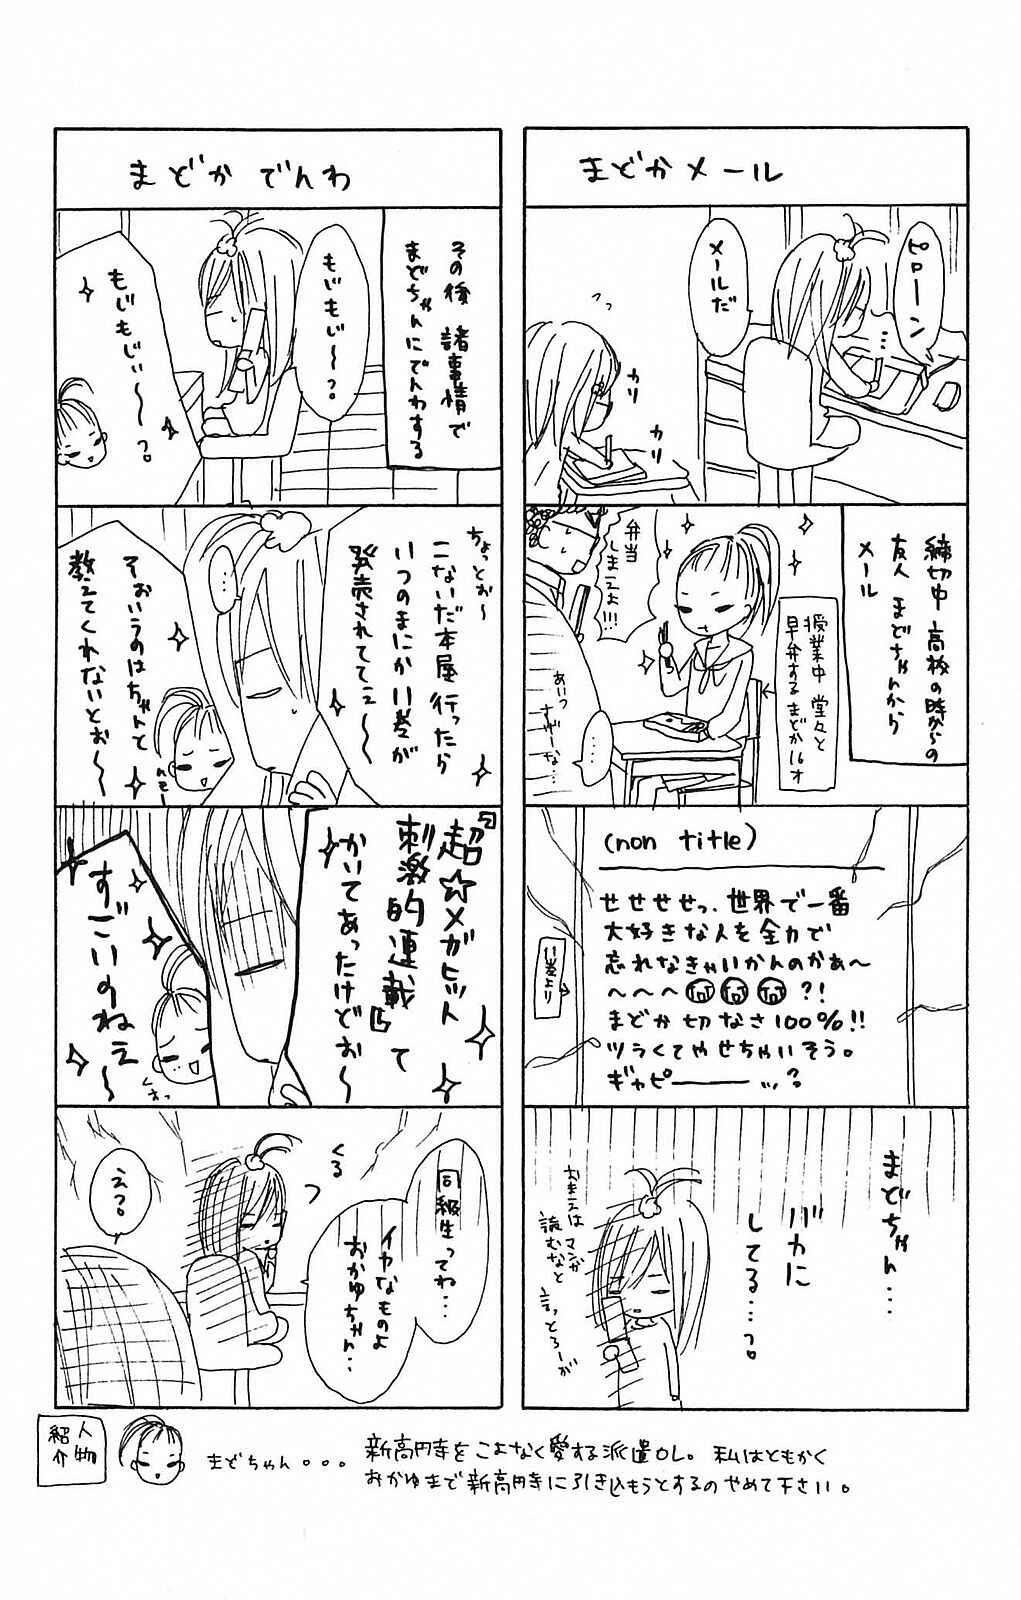 まどかメール
ピローン
メールだ
カリ
カリ
締切中 高校の時からの
友人 まどちゃんから
メール
授業中 堂々と
早弁するまどか16才
弁当
しまえよ!!!
あいつ
さぜーな…
……
(non title)
せせせせっ、世界で一番
大好きな人を全力で
忘れなきゃいかんのかあ〜
〜〜〜〜?!
まどか切なさ100%!!
ツラくてやせちゃいそう。
ギャピーーーッ…?
11巻より
まどちゃん…
バカに
してる…っ。
おまえは
マンガ
読むなと
言っとろーが
まどか でんわ
その後 諸事情で
まどちゃんにでんわする
もじもじ〜?
もじもじぃ〜〜?
ちょっとお〜
こないだ本屋行ったら
いつのまにか11巻が
発売されてえ〜
…
そおいうのはちゃんと
教えてくれないとお〜
『超☆メガヒット
刺激的連載』て
かいてあったけどお〜
すごいのねえ〜
くすっ
くる
同級生ってね…
イヤなものよ
おかゆちゃん…
えっ?
人物
紹介
まどちゃん。。。
新高円寺をこよなく愛する派遣OL。私はともかく
おかゆまで新高円寺に引き込もうとするのやめて下さい。